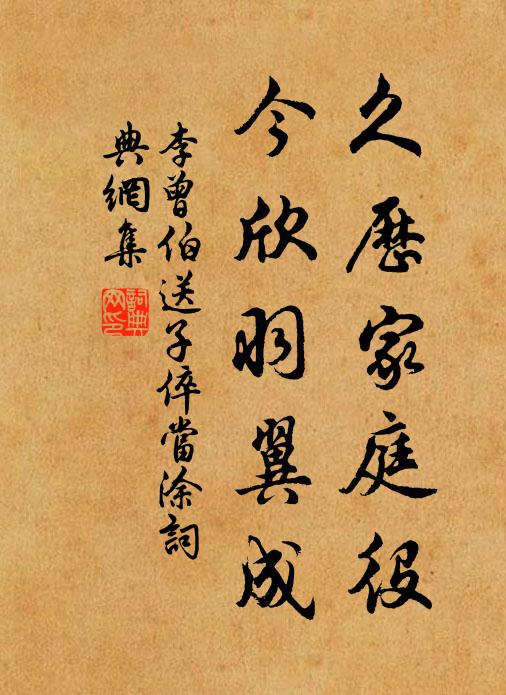 久歷家庭役
今欣羽翼成
李曾伯送子倅當涂詞
典網集
詞典網印